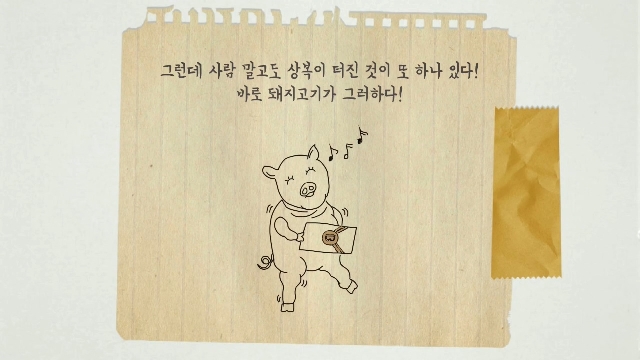 그런데 사람 말고도 상복이 터진 것이 또 하나 있다!
바로 돼지고기가 그러하다!